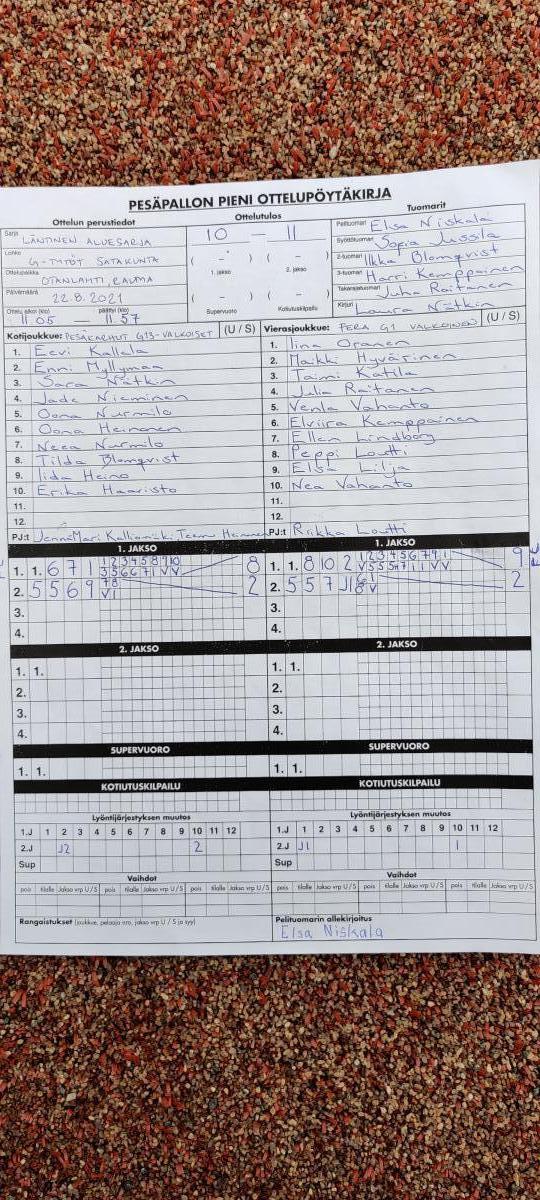 PESÄPALLON PIENI OTTELUPÖYTÄKIRJA
Ottelun perustiedot
Ottelutulos
Tuomarit
Sarja LÄNTINEN ALUESARJA
10 — 11
Pelituomari Elsa Niskala
Lohko G-TYTÖT SATAKUNTA
( - ) ( - )
Syöttötuomari Sonja Jussila
Ottelupaikka OTANLAHTI, RAUMA
1. jakso 2. jakso
2-tuomari Ilkka Blomqvist
3-tuomari Harri Kemppainen
Päivämäärä 22.8.2021
( - ) ( - )
Takarajatuomari Juha Raitanen
Ottelu alkoi (klo) 11.05 päättyi (klo) 11.57
Supervuoro Kotiutuskilpailu
Kirjuri Laura Nätkin
Kotijoukkue: PESÄKARHUT G13-VALKOISET (U / S)
Vierasjoukkue: FERA G1 VALKOINEN (U / S)
1. Eevi Kallela
2. Enni Myllymaa
3. Sara Nätkin
4. Jade Nieminen
5. Oona Nurmilo
6. Oona Heinonen
7. Neea Nurmilo
8. Tilda Blomqvist
9. Iida Heino
10. Erika Haaristo
11.
12.
PJ:t JennaMari
1. Iina Oranen
2. Maikki Hyvärinen
3. Taimi Katila
4. Julia Raitanen
5. Venla Vahanto
6. Elviira Kemppainen
7. Ellen Lindborg
8. Peppi Loutti
9. Elsa Lilja
10. Nea Vahanto
11.
12.
PJ:t Riikka Loutti
1. JAKSO
1. 1. 6 7 1
8
2. 5 5 6 9
2
3.
4.
1. JAKSO
1. 1. 8 10 2
9
2. 5 5 7 J1
2
3.
4.
2. JAKSO
1. 1.
2.
3.
4.
2. JAKSO
1. 1.
2.
3.
4.
SUPERVUORO
1. 1.
SUPERVUORO
1. 1.
KOTIUTUSKILPAILU
KOTIUTUSKILPAILU
Lyöntijärjestyksen muutos
1.J 1 2 3 4 5 6 7 8 9 10 11 12
2.J J2 2
Sup
Lyöntijärjestyksen muutos
1.J 1 2 3 4 5 6 7 8 9 10 11 12
2.J J1 1
Sup
Vaihdot
pois tilalle Jakso vrp U / S pois tilalle Jakso vrp U / S
Vaihdot
pois tilalle Jakso vrp U / S pois tilalle Jakso vrp U / S
Rangaistukset (joukkue, pelaaja nro, jakso vrp U / S ja syy)
Pelituomarin allekirjoitus
Elsa Niskala